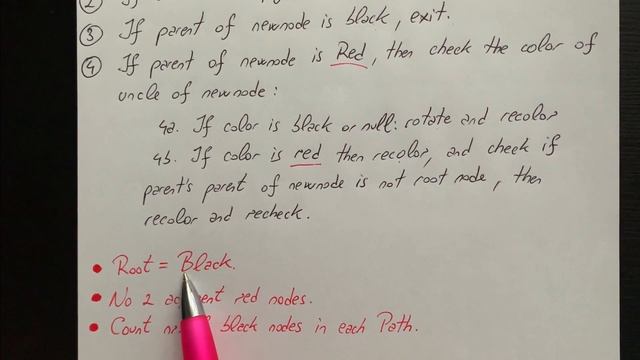 ③ If parent of newnode is black, exit.
④ If parent of newnode is Red, then check the color of
uncle of newnode:
4a. If color is black or null: rotate and recolor
4b. If color is red then recolor, and check if
parent's parent of newnode is not root node, then
recolor and recheck.
• Root = Black.
• No 2 red nodes.
• Count black nodes in each Path.